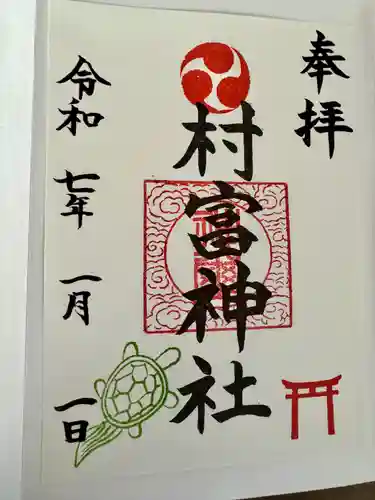 奉拝
村富神社
令和七年一月一日